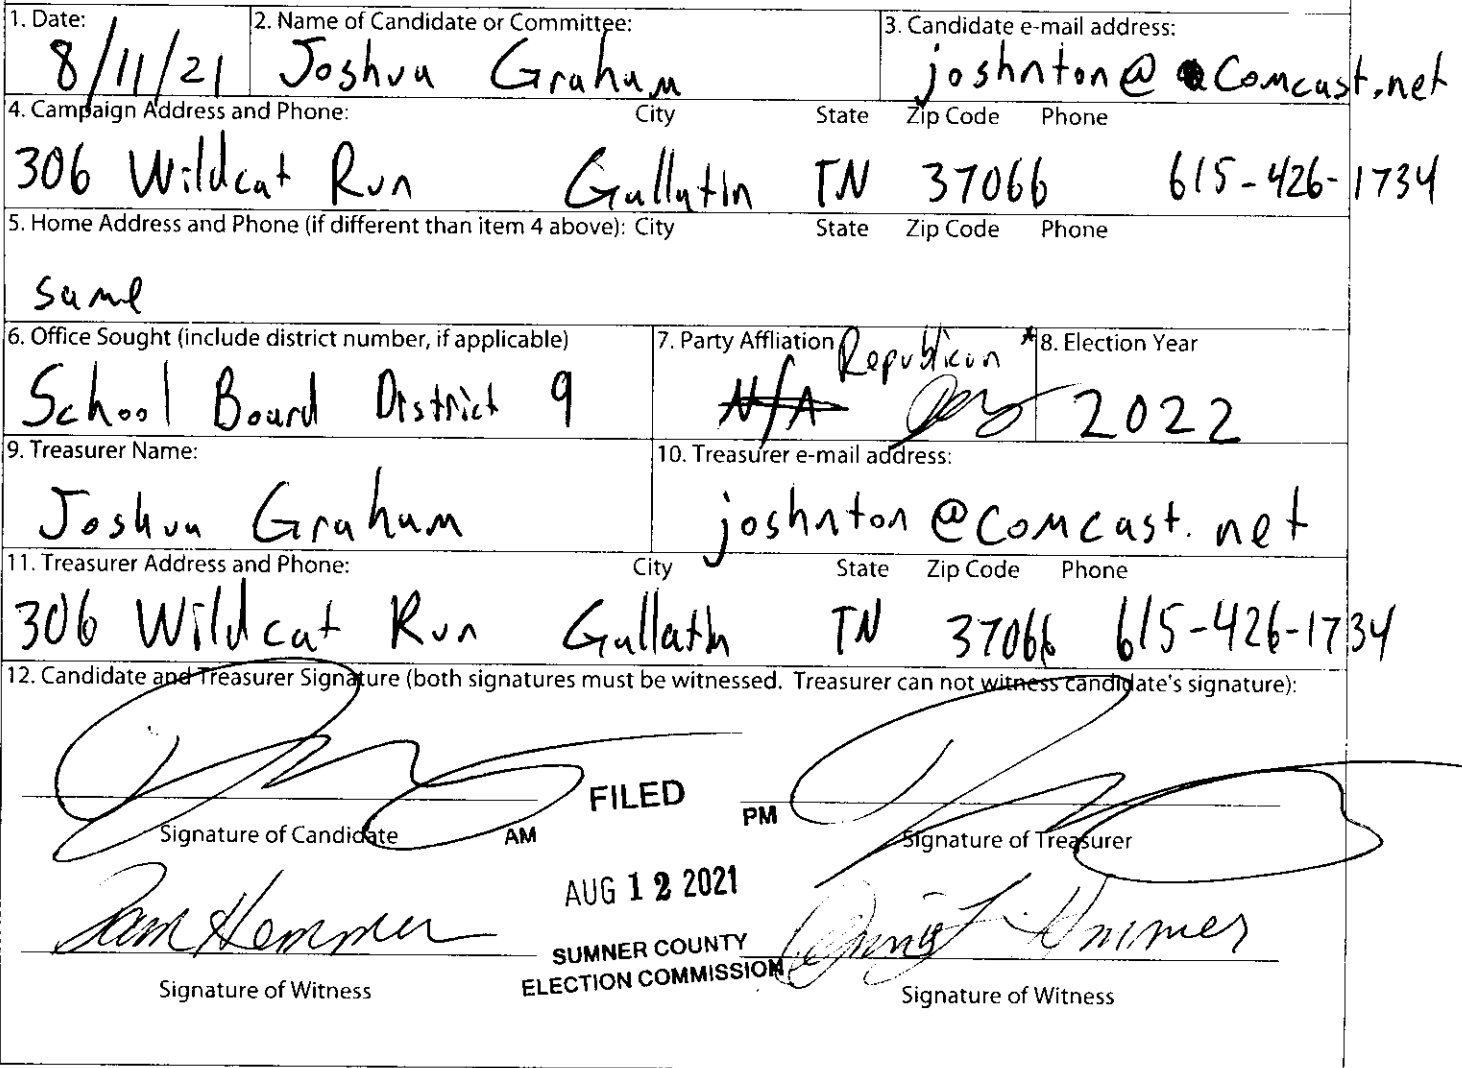 1. Date:
8/11/21
2. Name of Candidate or Committee:
Joshua Graham
3. Candidate e-mail address:
joshnton@Comcast.net
4. Campaign Address and Phone: City State Zip Code Phone
306 Wildcat Run Gallatin TN 37066 615-426-1734
5. Home Address and Phone (if different than item 4 above): City State Zip Code Phone
same
6. Office Sought (include district number, if applicable)
School Board District 9
7. Party Affliation
Republican *
N/A
8. Election Year
2022
9. Treasurer Name:
Joshua Graham
10. Treasurer e-mail address:
joshnton@Comcast.net
11. Treasurer Address and Phone: City State Zip Code Phone
306 Wildcat Run Gallatin TN 37066 615-426-1734
12. Candidate and Treasurer Signature (both signatures must be witnessed. Treasurer can not witness candidate's signature):
FILED
AM PM
Signature of Candidate
Signature of Treasurer
AUG 12 2021
SUMNER COUNTY
ELECTION COMMISSION
Signature of Witness
Signature of Witness